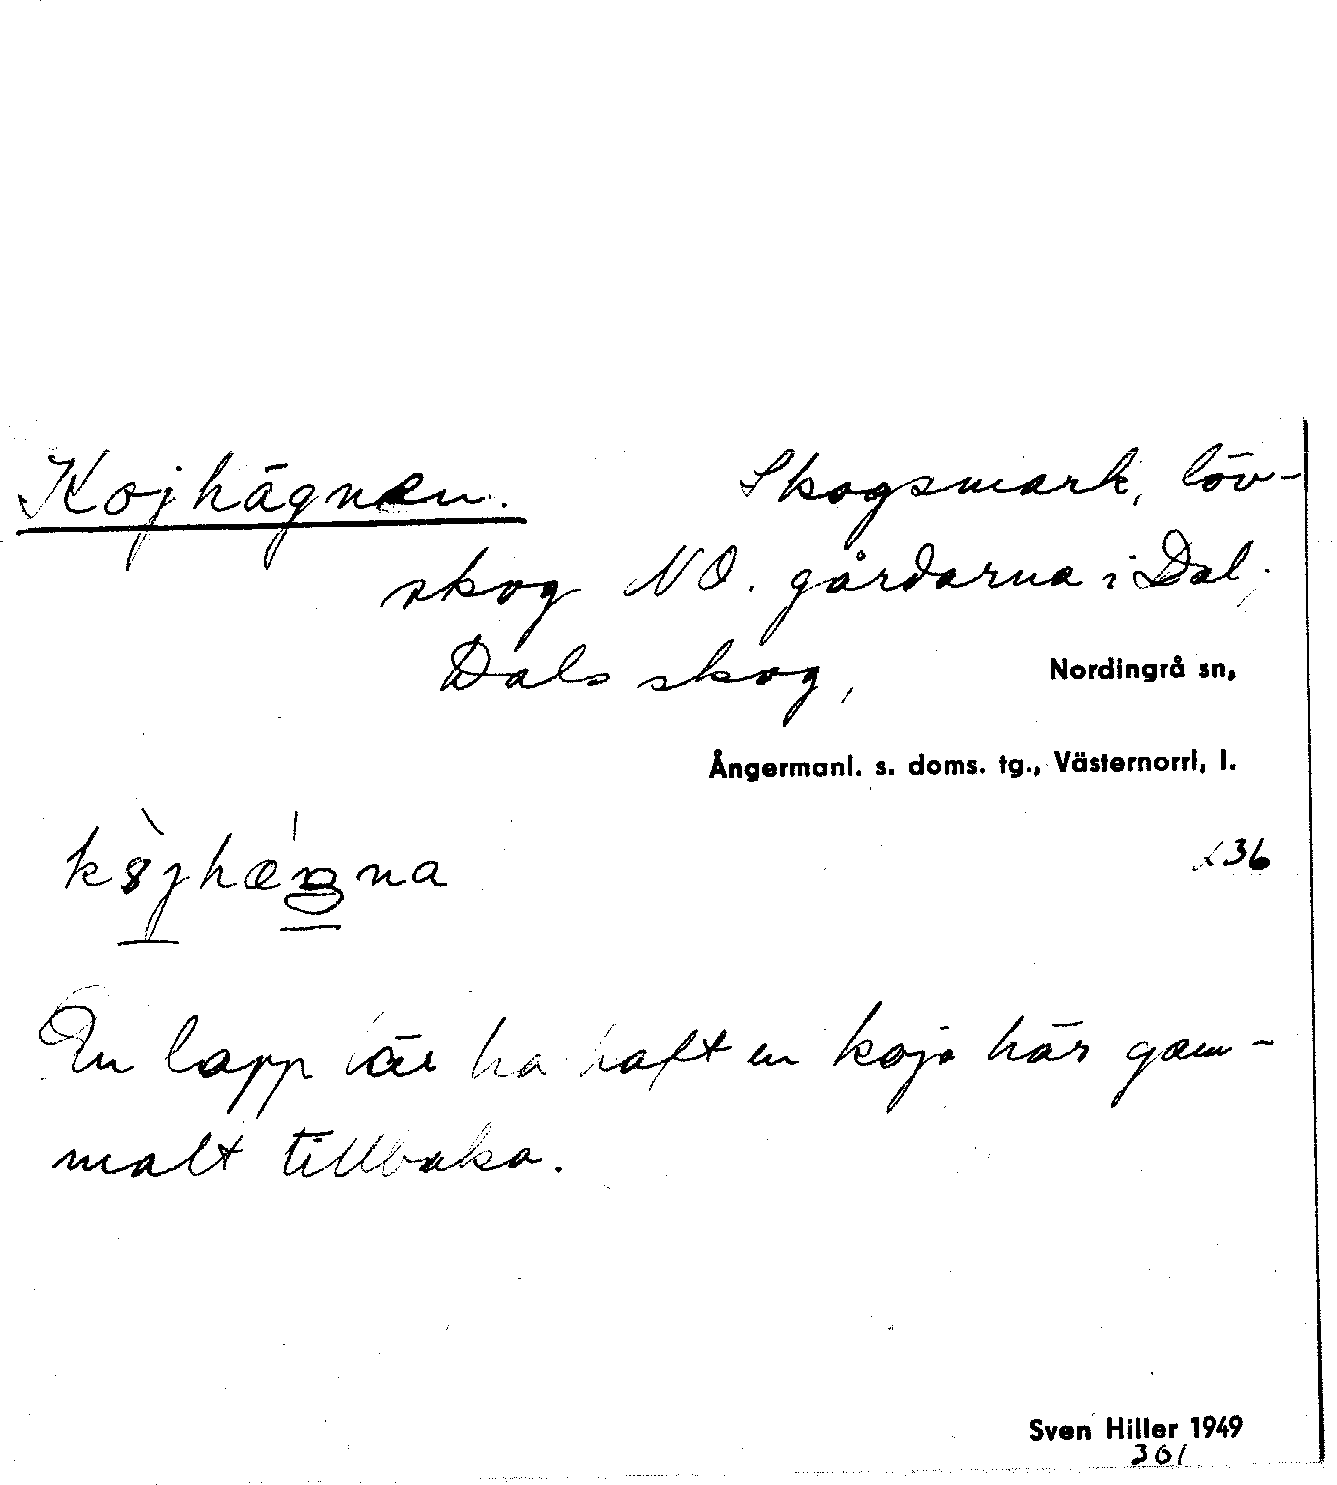 Kojhägnen. Skogsmark, löv-
skog NO. gårdarna i Dal,
Dals skog, Nordingrå sn,
Ångermanl. s. doms. tg., Västernorrl, l.
236
En lapp lär ha haft en koja här gam-
malt tillbaka.
Sven Hiller 1949
301